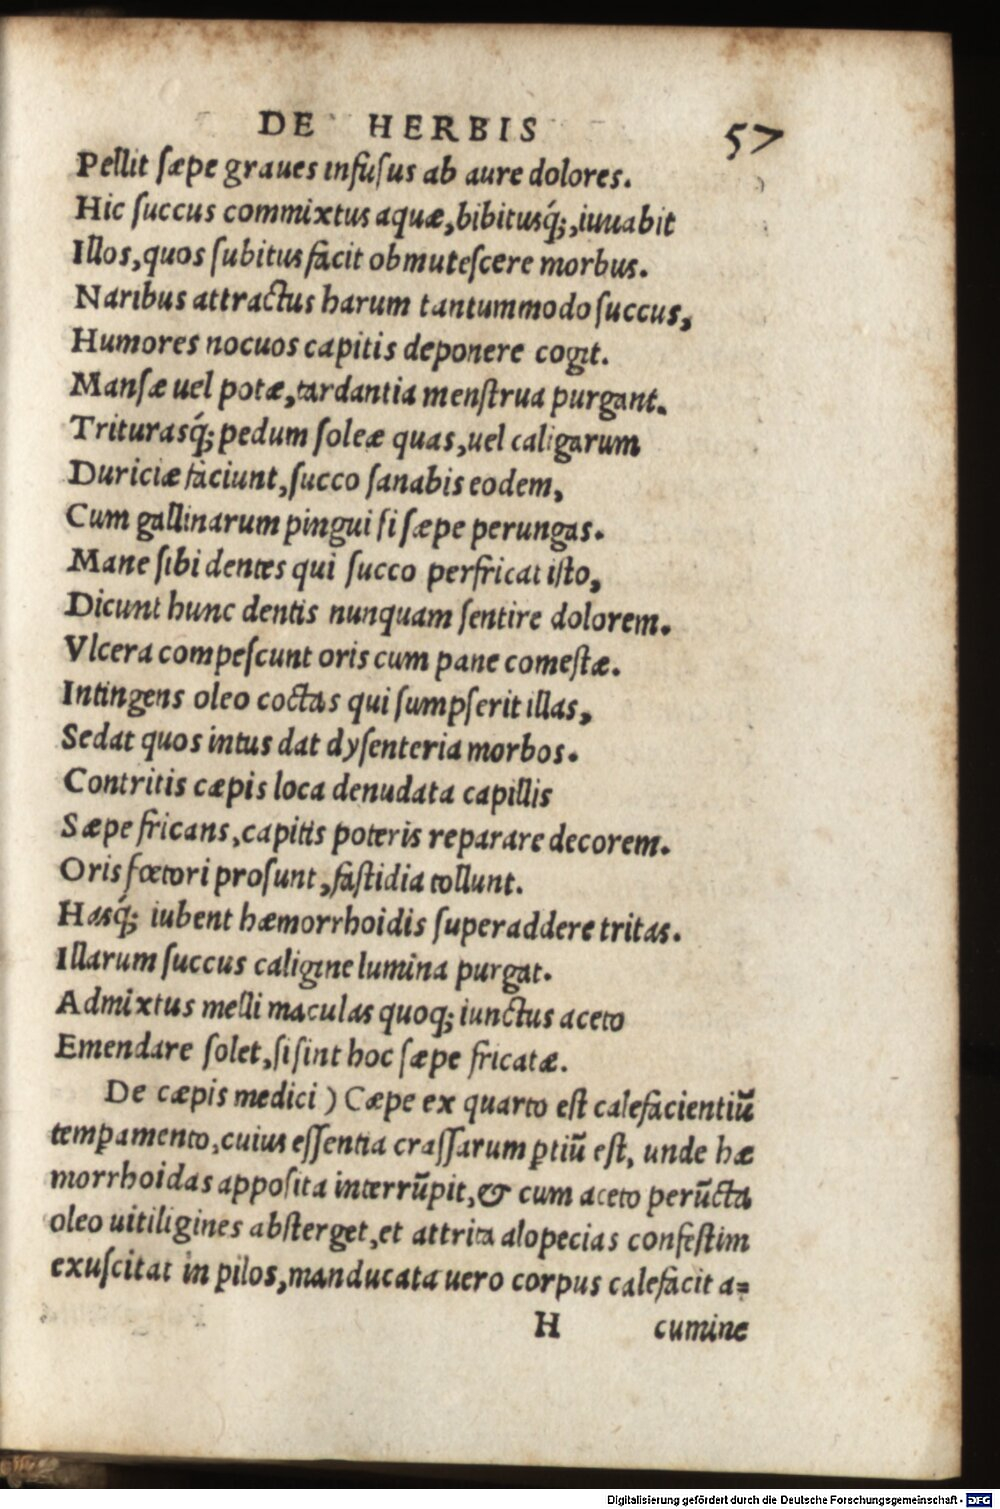 DE HERBIS 57
Pellit sæpe graues infusus ab aure dolores.
Hic succus commixtus aquæ, bibitusq́;, iuuabit
Illos, quos subitus facit obmutescere morbus.
Naribus attractus harum tantummodo succus,
Humores nocuos capitis deponere cogit.
Mansæ uel potæ, tardantia menstrua purgant.
Triturasq́; pedum soleæ quas, uel caligarum
Duriciæ faciunt, succo sanabis eodem,
Cum gallinarum pingui si sæpe perungas.
Mane sibi dentes qui succo perfricat isto,
Dicunt hunc dentis nunquam sentire dolorem.
Vlcera compescunt oris cum pane comestæ.
Intingens oleo coctas qui sumpserit illas,
Sedat quos intus dat dysenteria morbos.
Contritis cæpis loca denudata capillis
Sæpe fricans, capitis poteris reparare decorem.
Oris fœtori prosunt, fastidia tollunt.
Hasq́; iubent hæmorrhoidis superaddere tritas.
Illarum succus caligine lumina purgat.
Admixtus melli maculas quoq; iunctus aceto
Emendare solet, si sint hoc sæpe fricatæ.
De cæpis medici) Cæpe ex quarto est calefacientiũ
temꝑamento, cuius essentia crassarum ꝑtiũ est, unde hæ
morrhoidas apposita interrũpit, & cum aceto perũcta
oleo uitiligines absterget, et attrita alopecias confestim
exuscitat in pilos, manducata uero corpus calefacit a=
H cumine
Digitalisierung gefördert durch die Deutsche Forschungsgemeinschaft - DFG